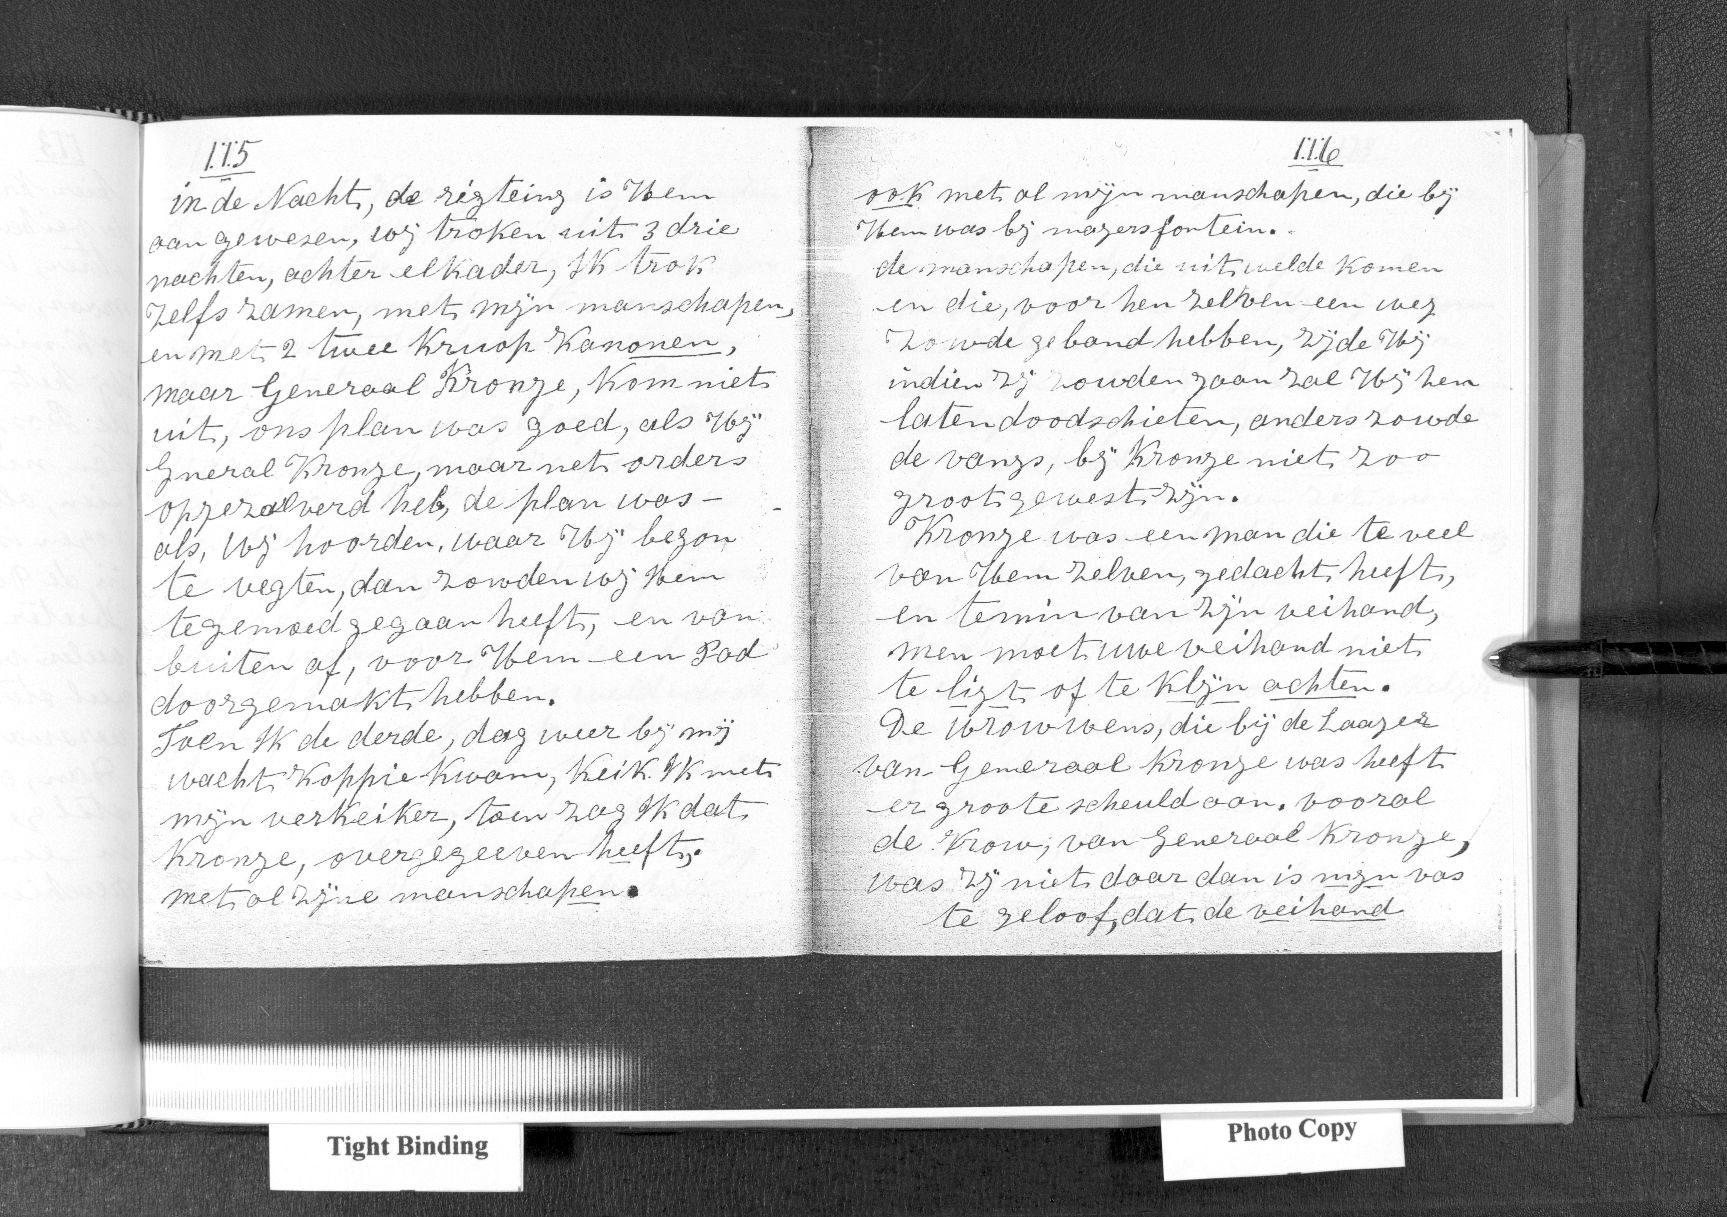 115
in de Nacht, de rigteing is Hem
aan gewesen, wij troken uit 3 drie
nachten, achter elkader, Ik trok
Zelfs zamen, met mijn manschapen,
en met 2 twee Kruop Kanonen,
maar Generaal Kronge, Kom niet
uit, ons plan was goed, als Hij
Gneral Kronge, maar net orders
opgezolverd heb, de plan was -
als, wij hoorden, waar Hij begon
te vegten, dan zowden wij Hem
tegemoed gegaan heeft, en van
buiten af, voor Hem een Pad
doorgemakt hebben.
Toen Ik de derde, dag weer bij mij
wacht Koppie Kwam, Keik Ik met
mijn verkeiker, toen zag Ik dat
Kronge, overgegeeven heeft,.
met al zijne manschapen.
116
ook met al mijn manschapen, die bij
Hem was bij magersfontein.
de manschapen, die uit welde Komen
en die, voor hen zelven een weg
Zowde geband hebben, zijde Hij
indien zij zowden gaan zal Hij hen
laten doodschieten, anders zowde
de vangs, bij Kronge niet zoo
groot gewest zijn.
Kronge was een man die te veel
van Hem zelven, gedacht heeft,
en temin van zijn veihand,
men moet uwe veihand niet
te ligt of te Klijn achten.
De vrowwens, die bij de Laager
van Generaal Kronge was heeft
er groote scheuld aan. vooral
de Vrow, van Generaal Kronge,
was zij niet daar dan is mijn vas
te geloof, dat de veihand
Tight Binding
Photo Copy